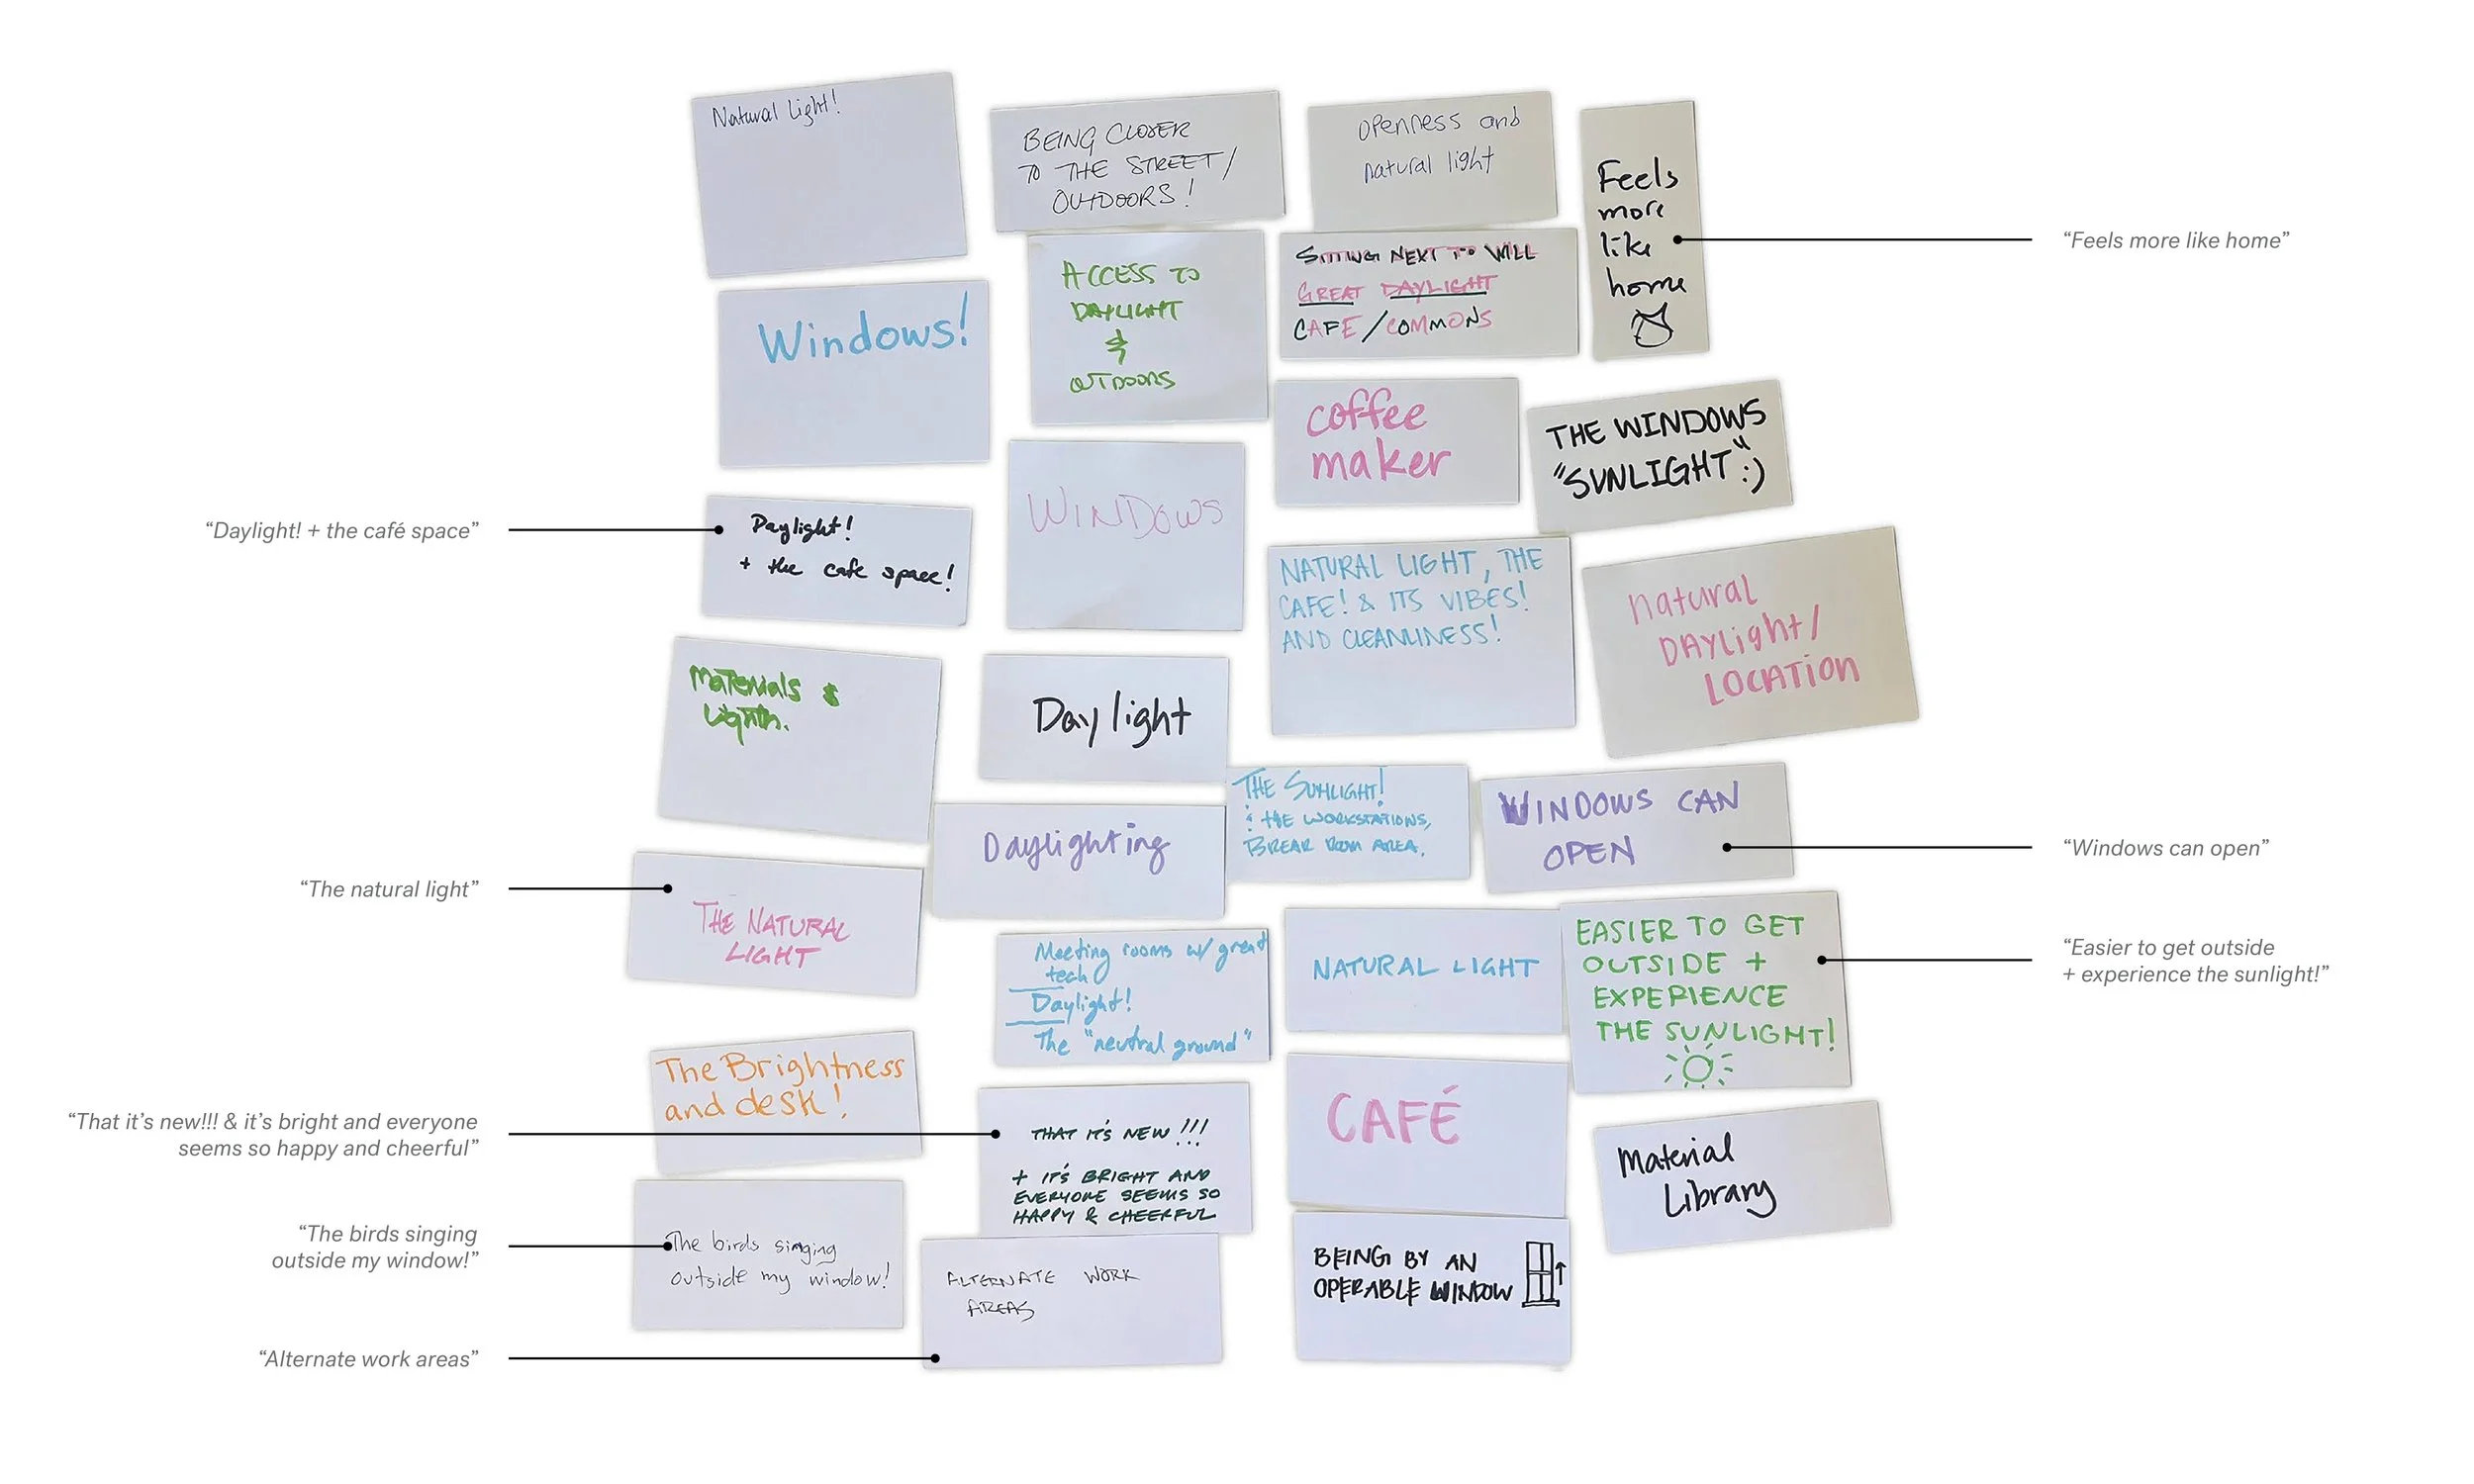 Natural Light!
BEING CLOSER
TO THE STREET/
OUTDOORS!
openness and
natural light
Feels
more
like
home
"Feels more like home"
ACCESS TO
DAYLIGHT
&
OUTDOORS
SITTING NEXT TO WILL
GREAT DAYLIGHT
CAFE/COMMONS
Windows!
coffee
maker
THE WINDOWS
"SUNLIGHT" :)
WINDOWS
"Daylight! + the café space"
Daylight!
+ the cafe space!
NATURAL LIGHT, THE
CAFE! & ITS VIBES!
AND CLEANLINESS!
natural
DAYLight/
LOCATION
Materials &
Daylight
THE SUNLIGHT!
& THE WORKSTATIONS,
BREAK ROOM AREA.
WINDOWS CAN
OPEN
"Windows can open"
Daylighting
"The natural light"
THE NATURAL
LIGHT
Meeting rooms w/ great
tech
Daylight!
The "neutral ground"
NATURAL LIGHT
EASIER TO GET
OUTSIDE +
EXPERIENCE
THE SUNLIGHT!
"Easier to get outside
+ experience the sunlight!"
The Brightness
and desk!
"That it's new!!! & it's bright and everyone
seems so happy and cheerful"
THAT IT'S NEW!!!
+ IT'S BRIGHT AND
EVERYONE SEEMS SO
HAPPY & CHEERFUL
CAFÉ
Material
Library
"The birds singing
outside my window!"
The birds singing
outside my window!
ALTERNATE WORK
AREAS
BEING BY AN
OPERABLE WINDOW
"Alternate work areas"